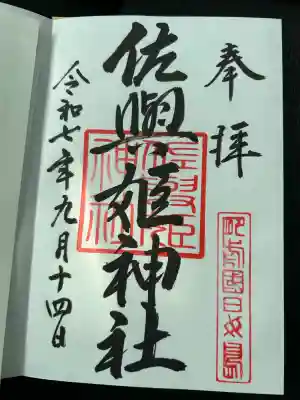 奉拝
佐與姫神社
令和七年九月十四日